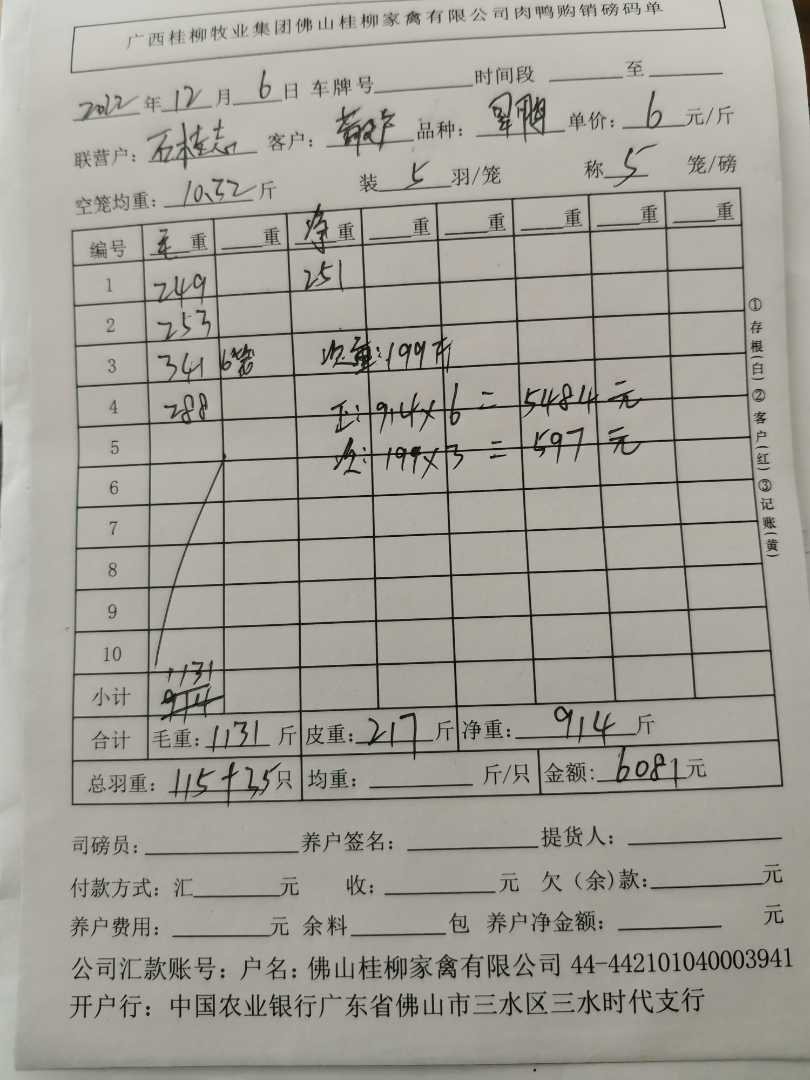 广西桂柳牧业集团佛山桂柳家禽有限公司肉鸭购销磅码单
2022年12月6日 车牌号 时间段 至
联营户: 石桂志 客户: 品种: 单价: 6 元/斤
空笼均重: 10.32斤 装 5 羽/笼 称 5 笼/磅
编号 毛重 重 净重 重 重 重 重 重
1 249 251
2 253
3 341 6笼 次重: 199斤
4 288 正: 914×6 = 5484元
5 次: 199×3 = 597元
6
7
8
9
10
小计 1131 914
合计 毛重: 1131斤 皮重: 217斤 净重: 914斤
总羽重: 115+35只 均重: 斤/只 金额: 6081元
司磅员: 养户签名: 提货人:
付款方式: 汇 元 收: 元 欠(余)款: 元
养户费用: 元 余料 包 养户净金额: 元
公司汇款账号: 户名: 佛山桂柳家禽有限公司 44-442101040003941
开户行: 中国农业银行广东省佛山市三水区三水时代支行
①存根(白)②客户(红)③记账(黄)